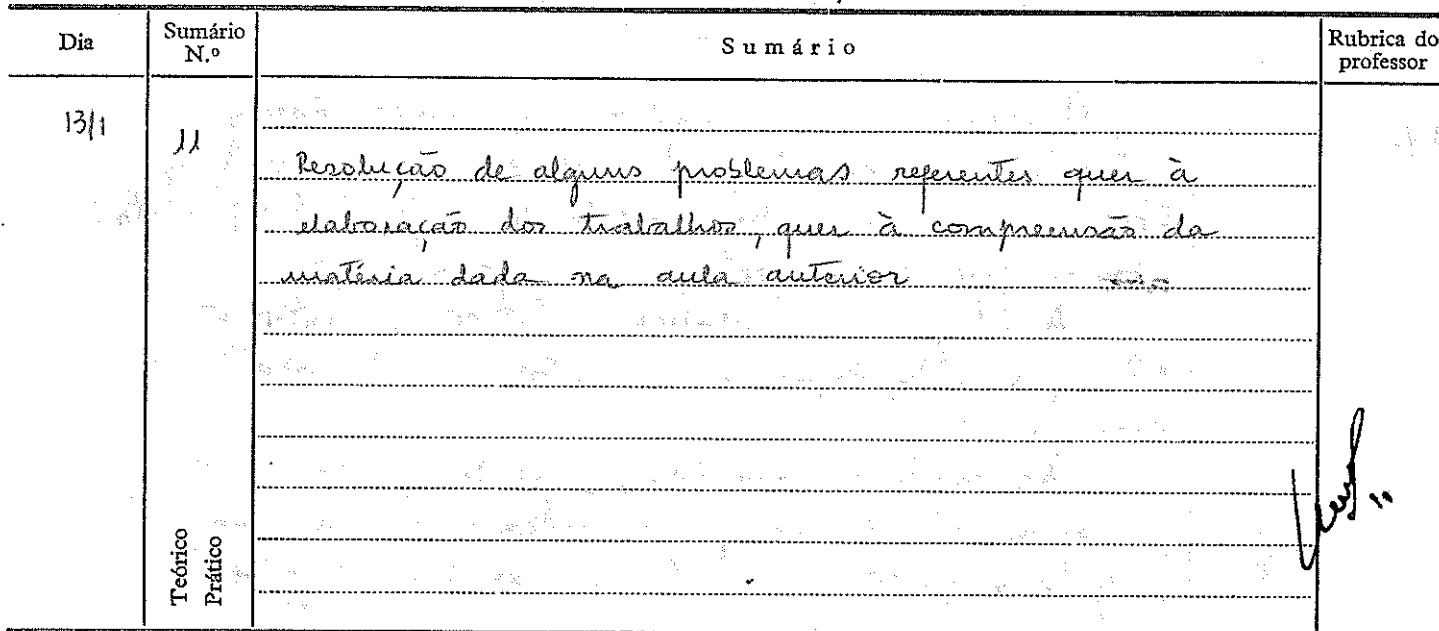 Dia
Sumário
N.º
Sumário
Rubrica do
professor
13/1
11
Resolução de alguns problemas referentes quer à
elaboração dos trabalhos, quer à compreensão da
matéria dada na aula anterior
Teórico
Prático